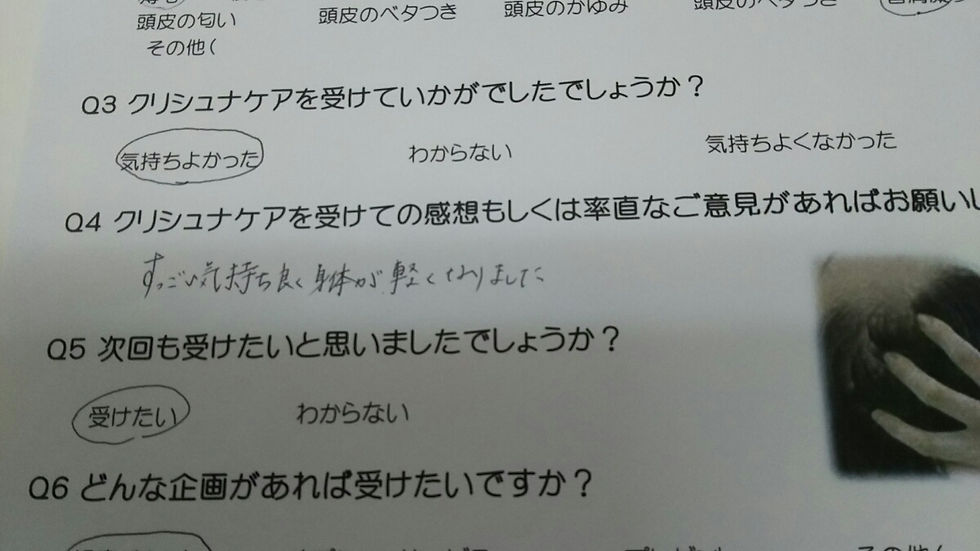 頭皮の匂い 頭皮のベタつき 頭皮のかゆみ
その他(
Q3 クリシュナケアを受けていかがでしたでしょうか？
気持ちよかった わからない 気持ちよくなかった
Q4 クリシュナケアを受けての感想もしくは率直なご意見があればお願いし
すっごい気持ち良く身体が軽くなりました
Q5 次回も受けたいと思いましたでしょうか？
受けたい わからない
Q6 どんな企画があれば受けたいですか？
その他(